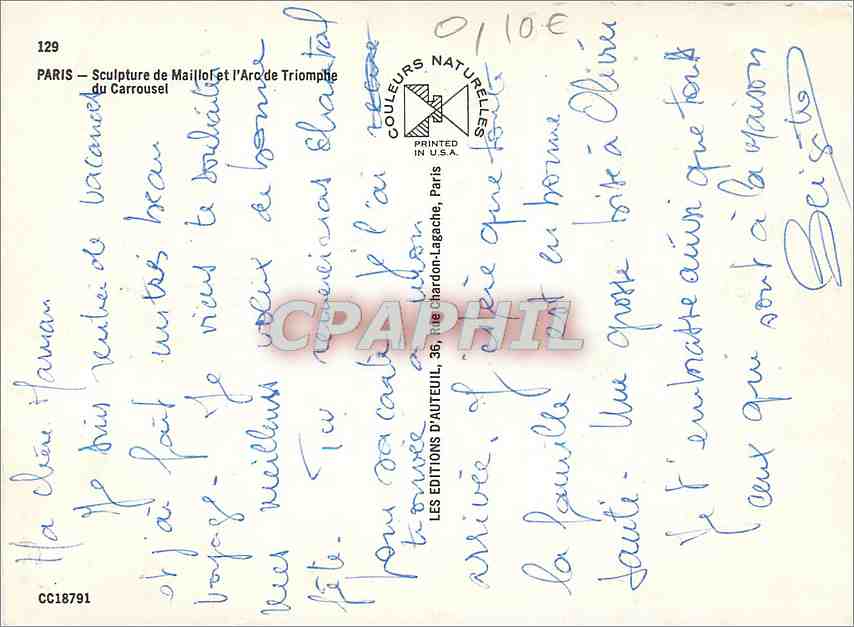 129
PARIS — Sculpture de Maillol et l'Arc de Triomphe
du Carrousel
0,10€
COULEURS NATURELLES
PRINTED
IN U.S.A.
LES EDITIONS D'AUTEUIL, 36, Rue Chardon-Lagache, Paris
CPAPHIL
Ma chère Maman
Je suis rentrée de vacances
et j'ai fait un très beau
voyage. Je viens te souhaiter
mes meilleurs vœux de bonne
fête. Tu remercieras Chantal
pour sa carte je l'ai
trouvée à mon
arrivée. J'espère que toute
la famille est en bonne
santé. Une grosse bise à Olivier
Je t'embrasse ainsi que tous
ceux qui sont à la maison
CC18791